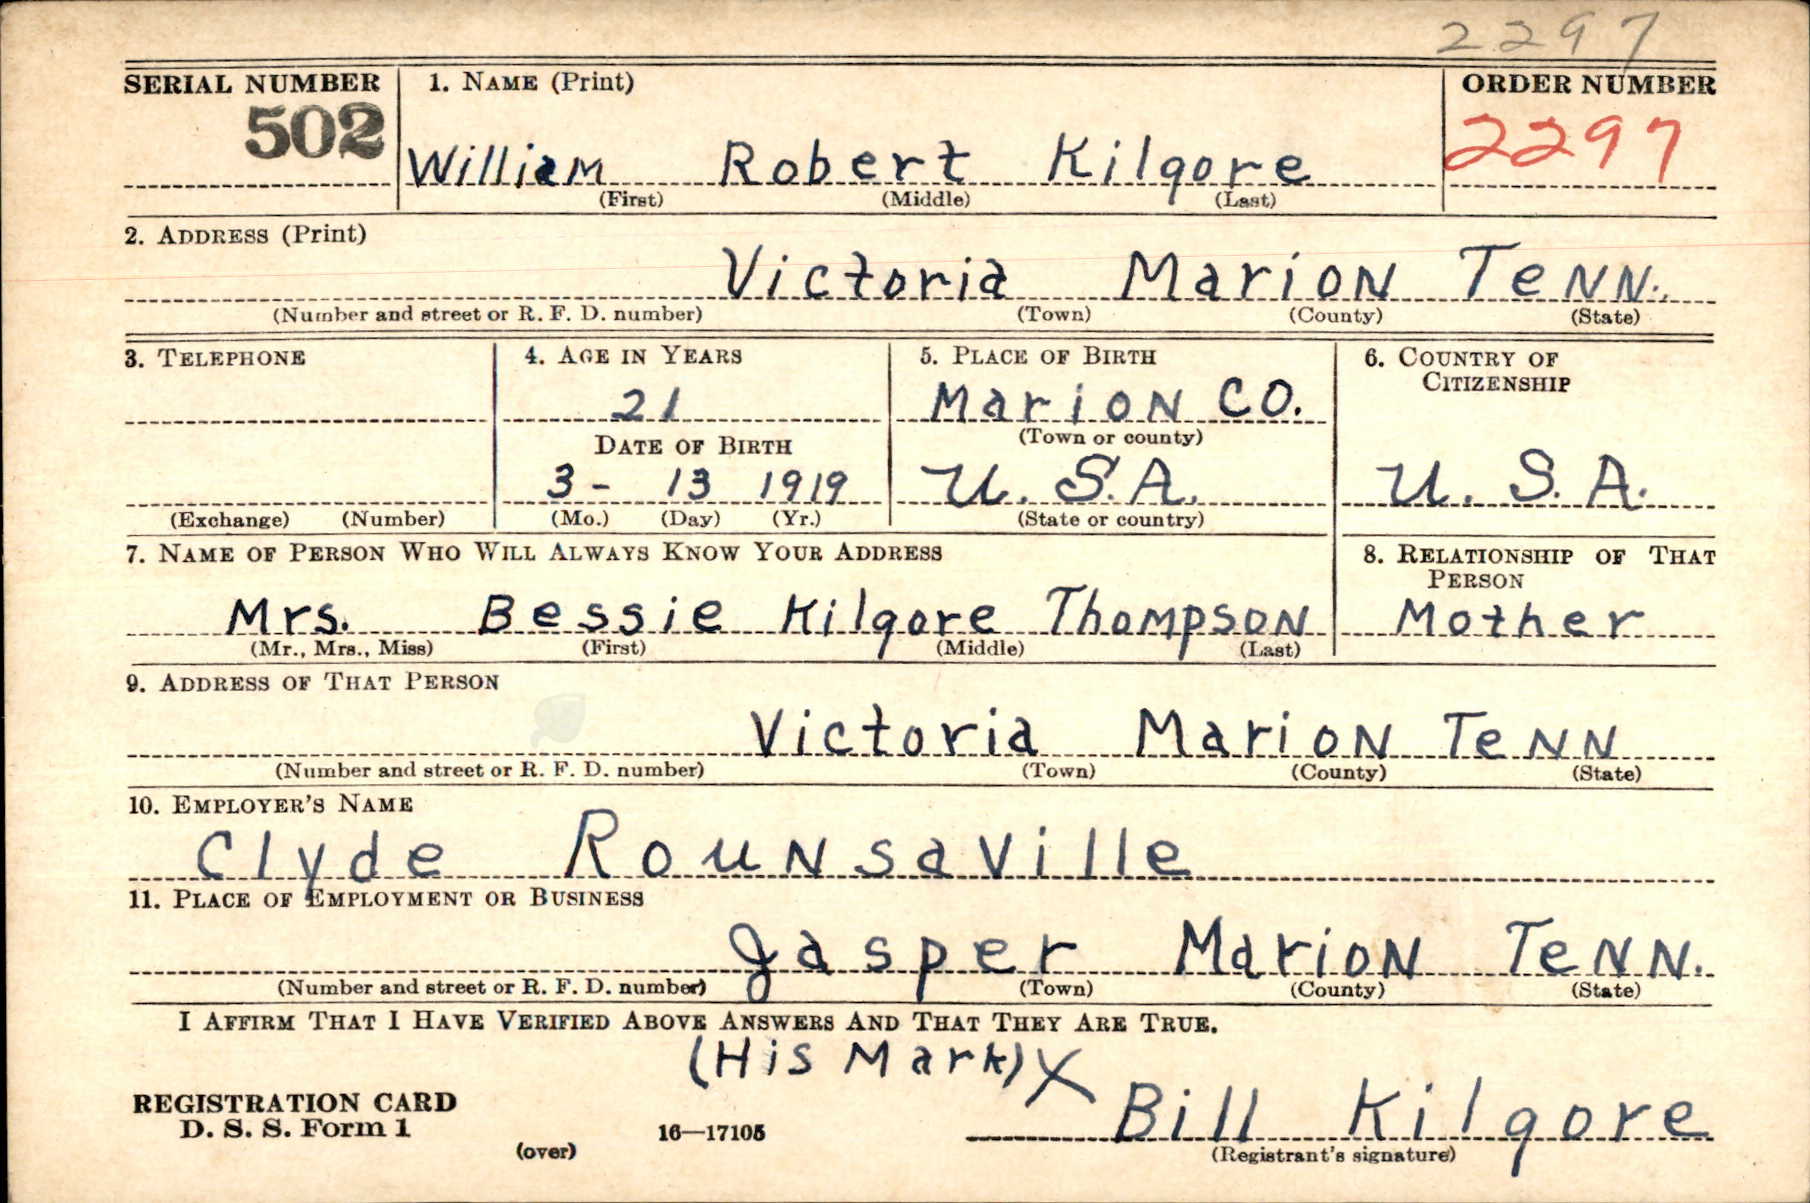 2297
SERIAL NUMBER 1. NAME (Print) ORDER NUMBER
502 William Robert Kilgore 2297
(First) (Middle) (Last)
2. ADDRESS (Print)
Victoria Marion Tenn.
(Number and street or R. F. D. number) (Town) (County) (State)
3. TELEPHONE 4. AGE IN YEARS 5. PLACE OF BIRTH 6. COUNTRY OF
CITIZENSHIP
21 Marion Co.
DATE OF BIRTH (Town or county)
3- 13 1919 U. S. A. U. S. A.
(Exchange) (Number) (Mo.) (Day) (Yr.) (State or country)
7. NAME OF PERSON WHO WILL ALWAYS KNOW YOUR ADDRESS 8. RELATIONSHIP OF THAT
PERSON
Mrs. Bessie Kilgore Thompson Mother
(Mr., Mrs., Miss) (First) (Middle) (Last)
9. ADDRESS OF THAT PERSON
Victoria Marion Tenn
(Number and street or R. F. D. number) (Town) (County) (State)
10. EMPLOYER'S NAME
Clyde Rounsaville
11. PLACE OF EMPLOYMENT OR BUSINESS
Jasper Marion Tenn.
(Number and street or R. F. D. number) (Town) (County) (State)
I AFFIRM THAT I HAVE VERIFIED ABOVE ANSWERS AND THAT THEY ARE TRUE.
(His Mark) X
REGISTRATION CARD Bill Kilgore
D. S. S. Form 1 16—17105
(over) (Registrant's signature)